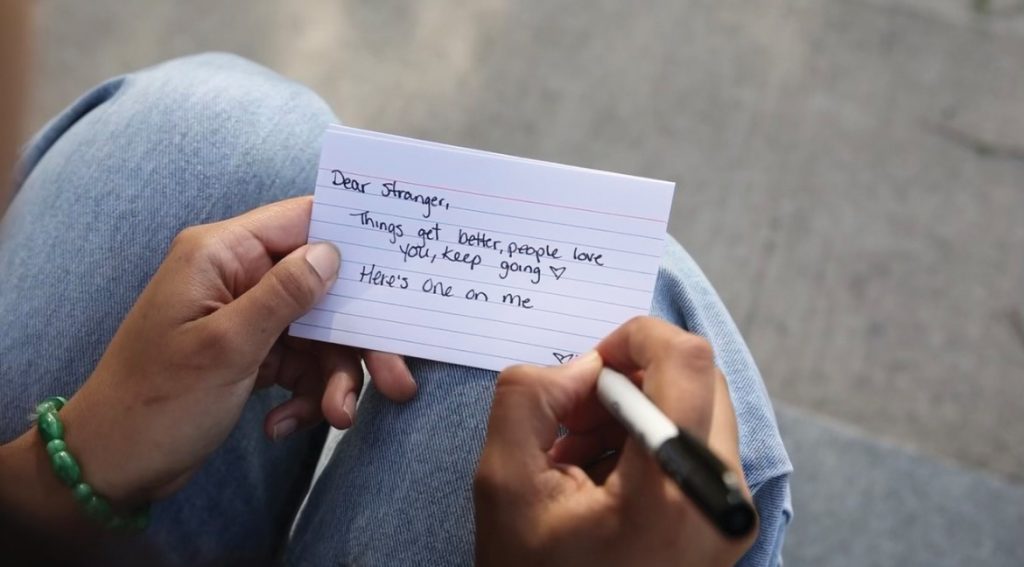 Dear stranger,
Things get better, people love
you, keep going ♡
Here's one on me